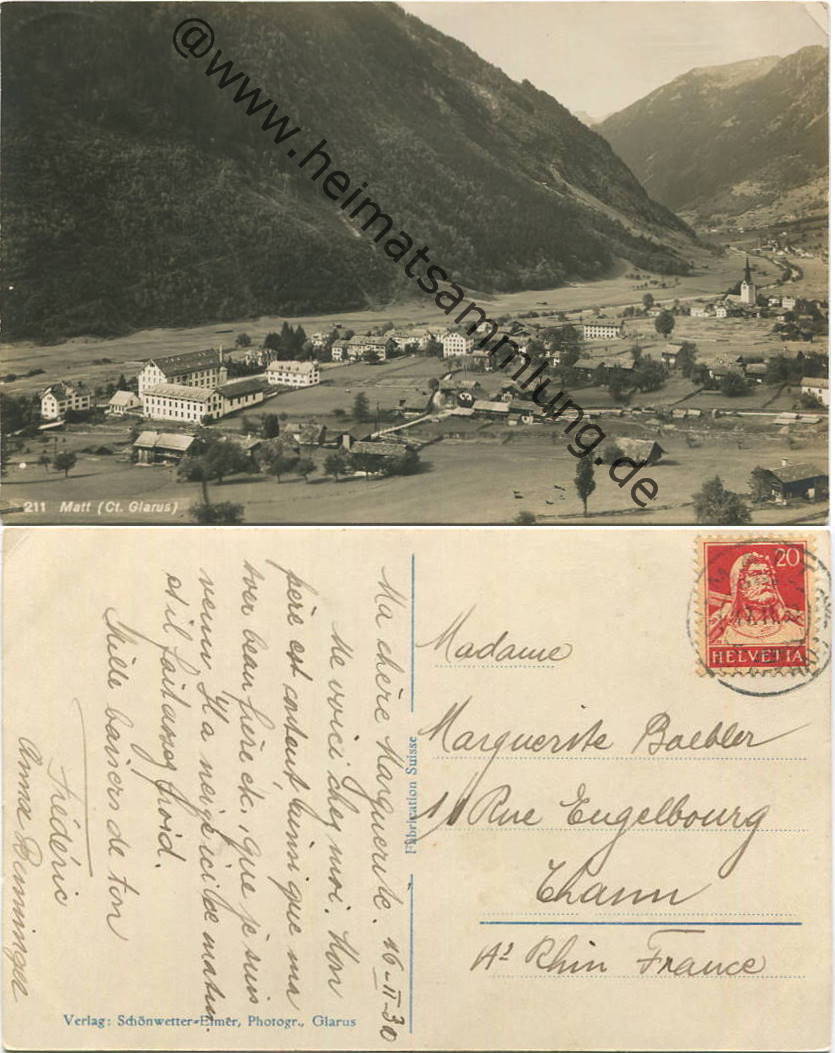 @www.heimatsammlung.de
211 Matt (Ct. Glarus)
20
HELVETIA
Ma chère Marguerite. 16-II-30
Me voici chez moi. Mon
père est content ainsi que ma
beau frère etc., que je suis
venu. Il a neigé ici ce matin.
et il fait assez froid.
Mille baisers de ton
Frédéric
Anna
Fabrication Suisse
Madame
Marguerite Baebler
Rue Engelbourg
Thann
Ht Rhin France
Verlag: Schönwetter-Elmer, Photogr., Glarus